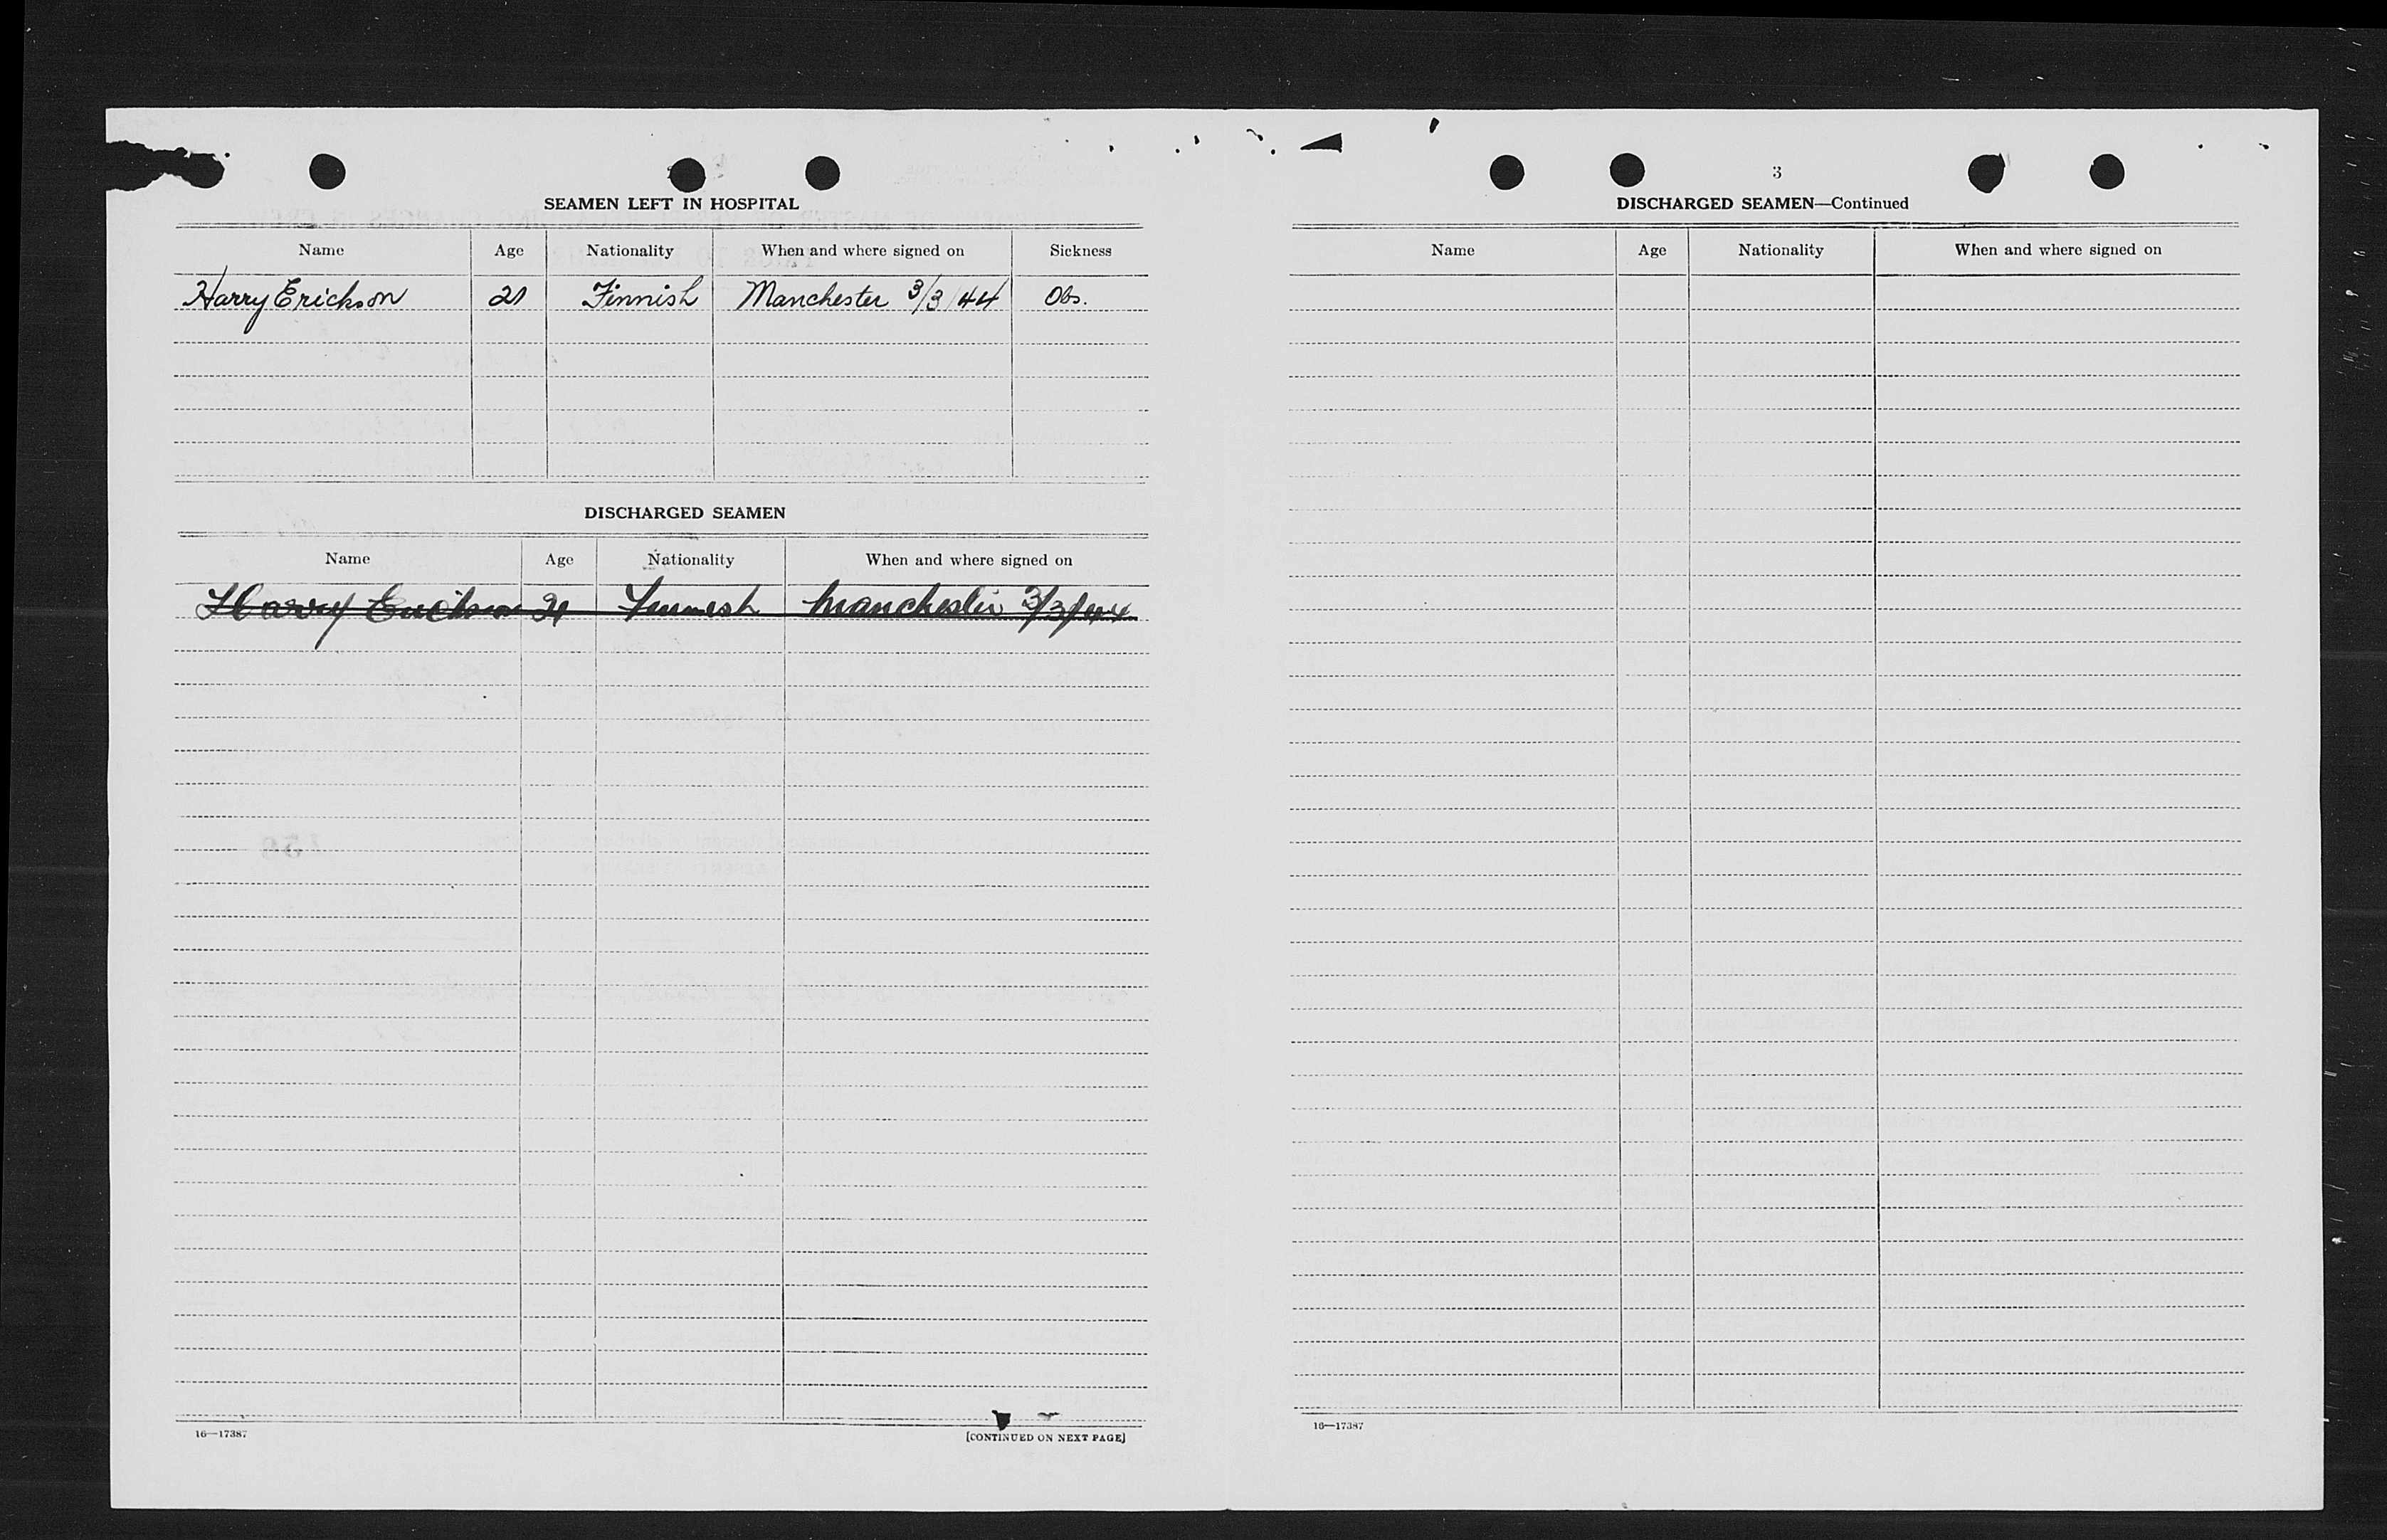 SEAMEN LEFT IN HOSPITAL
Name Age Nationality When and where signed on Sickness
Harry Erickson 21 Finnish Manchester 3/3/44 Obs.
DISCHARGED SEAMEN
Name Age Nationality When and where signed on
Harry Erickson 21 Finnish Manchester 3/3/44
16—17387
[CONTINUED ON NEXT PAGE]
3
DISCHARGED SEAMEN—Continued
Name Age Nationality When and where signed on
16—17387